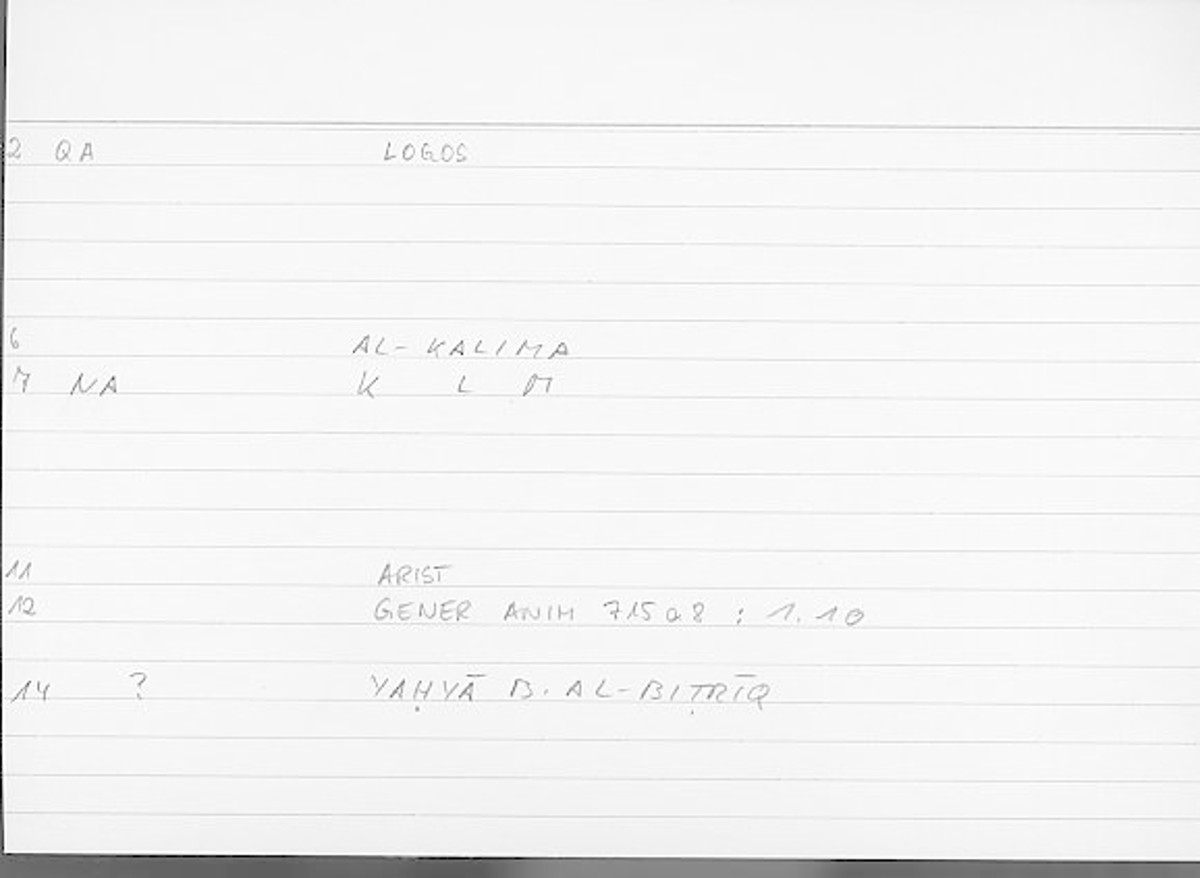 2 QA LOGOS
6 AL-KALIMA
7 NA K L M
11 ARIST
12 GENER ANIM 715a8 : 1.10
14 ? YAḤYĀ B. AL-BIṬRĪQ